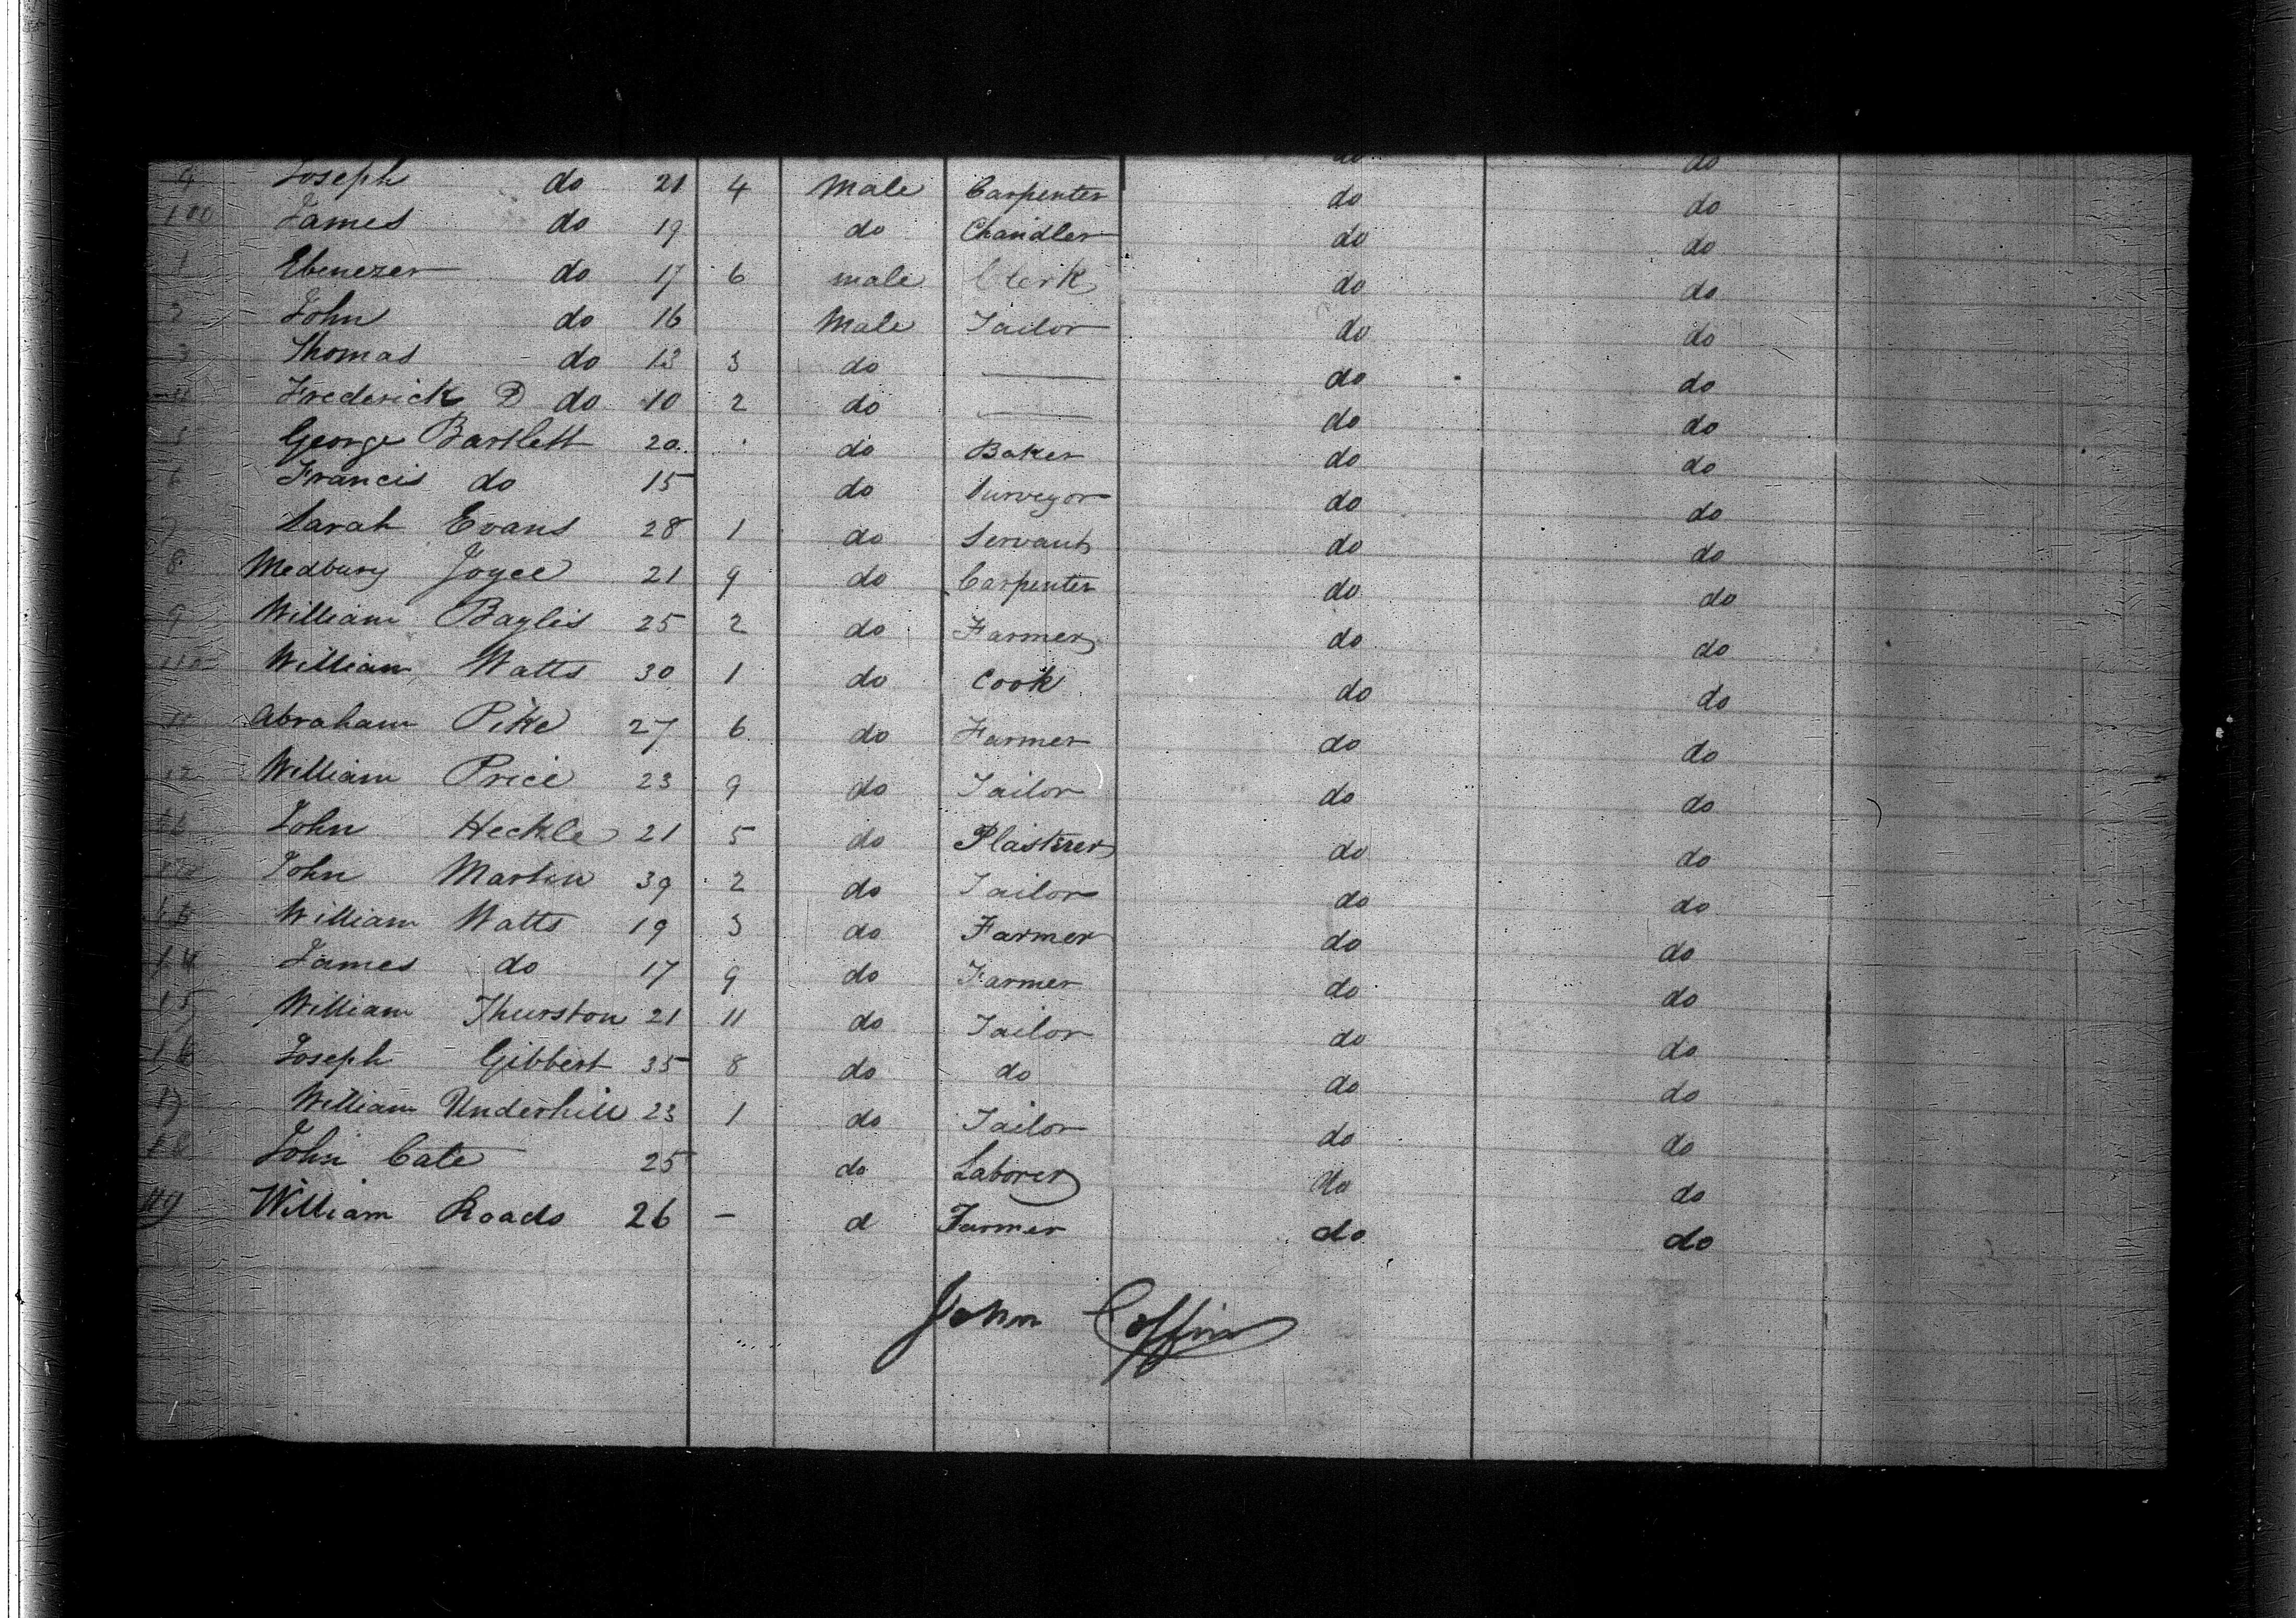 9 Joseph do 21 4 Male Carpenter do do
100 James do 19 do Chandler do do
1 Ebenezer do 17 6 male Clerk do do
2 John do 16 Male Tailor do do
3 Thomas do 13 3 do — do do
Frederick D do 10 2 do — do do
5 George Bartlett 20 do Baker do do
6 Francis do 15 do Surveyor do do
7 Sarah Evans 28 1 do Servant do do
8 Medbury Joyce 21 9 do Carpenter do do
9 William Baylis 25 2 do Farmer do do
110 William Watts 30 1 do Cook do do
11 Abraham Pike 27 6 do Farmer do do
12 William Price 23 9 do Tailor do do
John Heckle 21 5 do Plasterer do do
John Martin 39 2 do Tailor do do
William Watts 19 3 do Farmer do do
14 James do 17 9 do Farmer do do
15 William Thurston 21 11 do Tailor do do
16 Joseph Gibbert 35 8 do do do do
17 William Underhill 23 1 do Tailor do do
18 John Cate 25 do Laborer do do
119 William Roads 26 — d Farmer do do
John Coffin